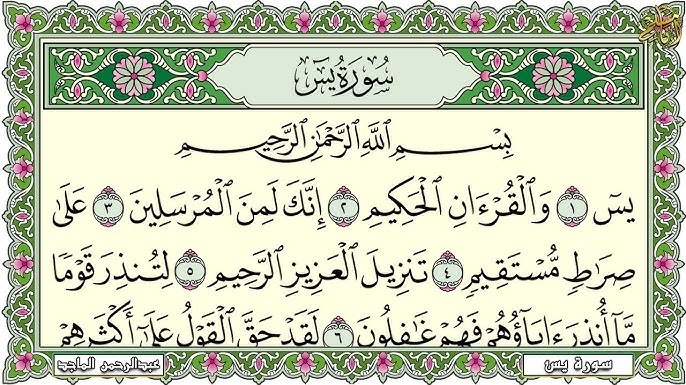 سُورَةُ يسٓ
بِسْمِ ٱللَّهِ ٱلرَّحْمَٰنِ ٱلرَّحِيمِ
يسٓ ١ وَٱلْقُرْءَانِ ٱلْحَكِيمِ ٢ إِنَّكَ لَمِنَ ٱلْمُرْسَلِينَ ٣ عَلَىٰ
صِرَٰطٍ مُّسْتَقِيمٍ ٤ تَنزِيلَ ٱلْعَزِيزِ ٱلرَّحِيمِ ٥ لِتُنذِرَ قَوْمًا
مَّآ أُنذِرَ ءَابَآؤُهُمْ فَهُمْ غَٰفِلُونَ ٦ لَقَدْ حَقَّ ٱلْقَوْلُ عَلَىٰٓ أَكْثَرِهِمْ
سورة يس
عبدالرحمن الماجد